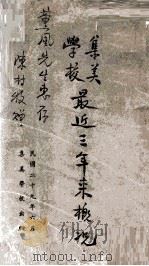 集美
學校
最近三年来概况
薰風先生惠存
陳村牧贈
民國二十九年六月
集美學校